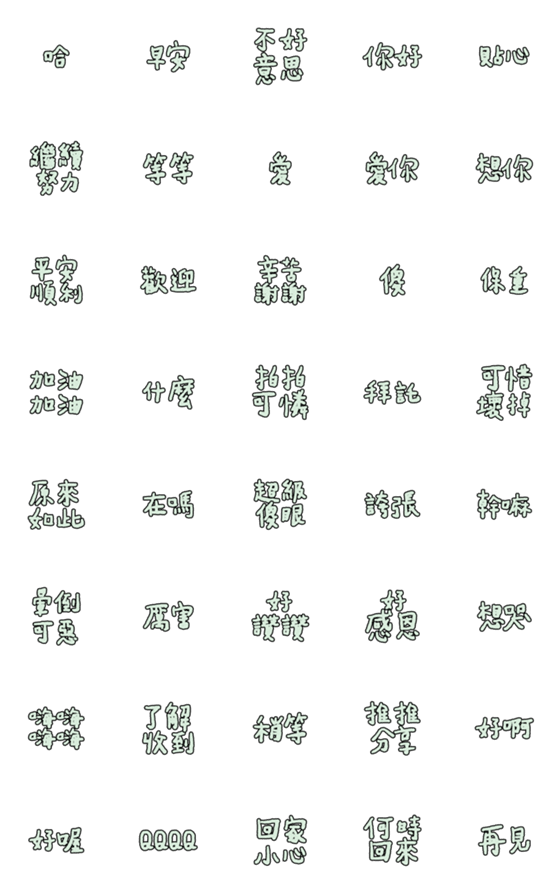 哈
早安
不好
意思
你好
貼心
繼續
努力
等等
愛
愛你
想你
平安
順利
歡迎
辛苦
謝謝
傻
保重
加油
加油
什麼
拍拍
可憐
拜託
可惜
壞掉
原來
如此
在嗎
超級
傻眼
誇張
幹嘛
暈倒
可惡
厲害
好
讚讚
好
感恩
想哭
嗨嗨
嗨嗨
了解
收到
稍等
推推
分享
好啊
好喔
QQQQ
回家
小心
何時
回來
再見